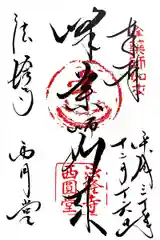 奉拝
平成三十年
十二月十六日
峰薬師如来
法隆寺
西円堂
法隆寺
西圓堂